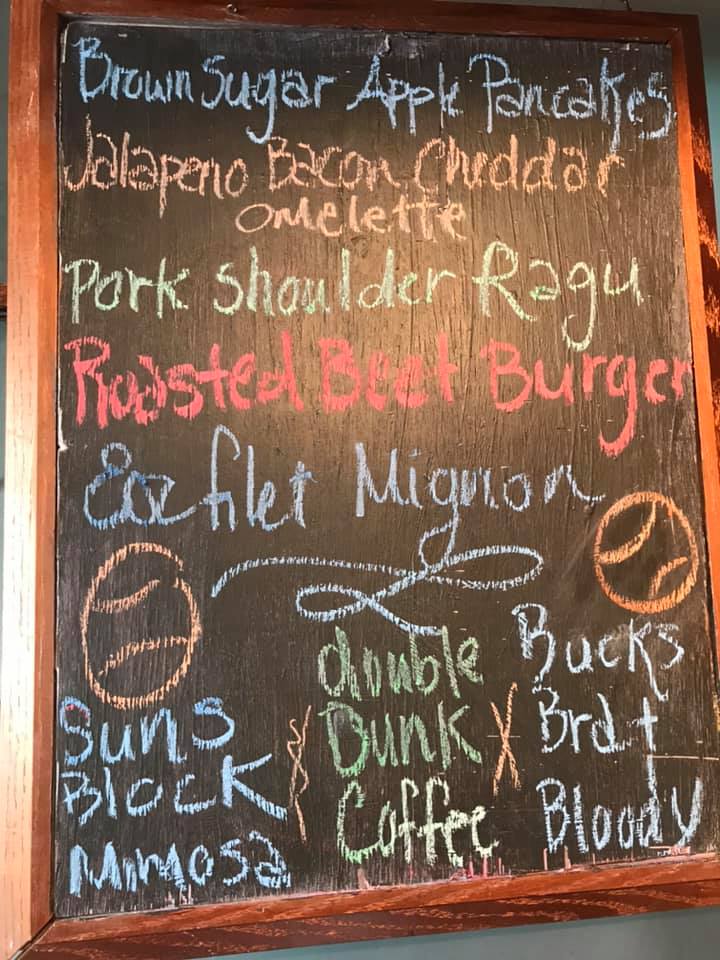 Brown Sugar Apple Pancakes
Jalapeno Bacon Cheddar
omelette
Pork Shoulder Ragu
Roasted Beet Burger
8oz filet Mignon
Suns
Block
Mimosa
double
Dunk
Coffee
Bucks
Brat
Bloody